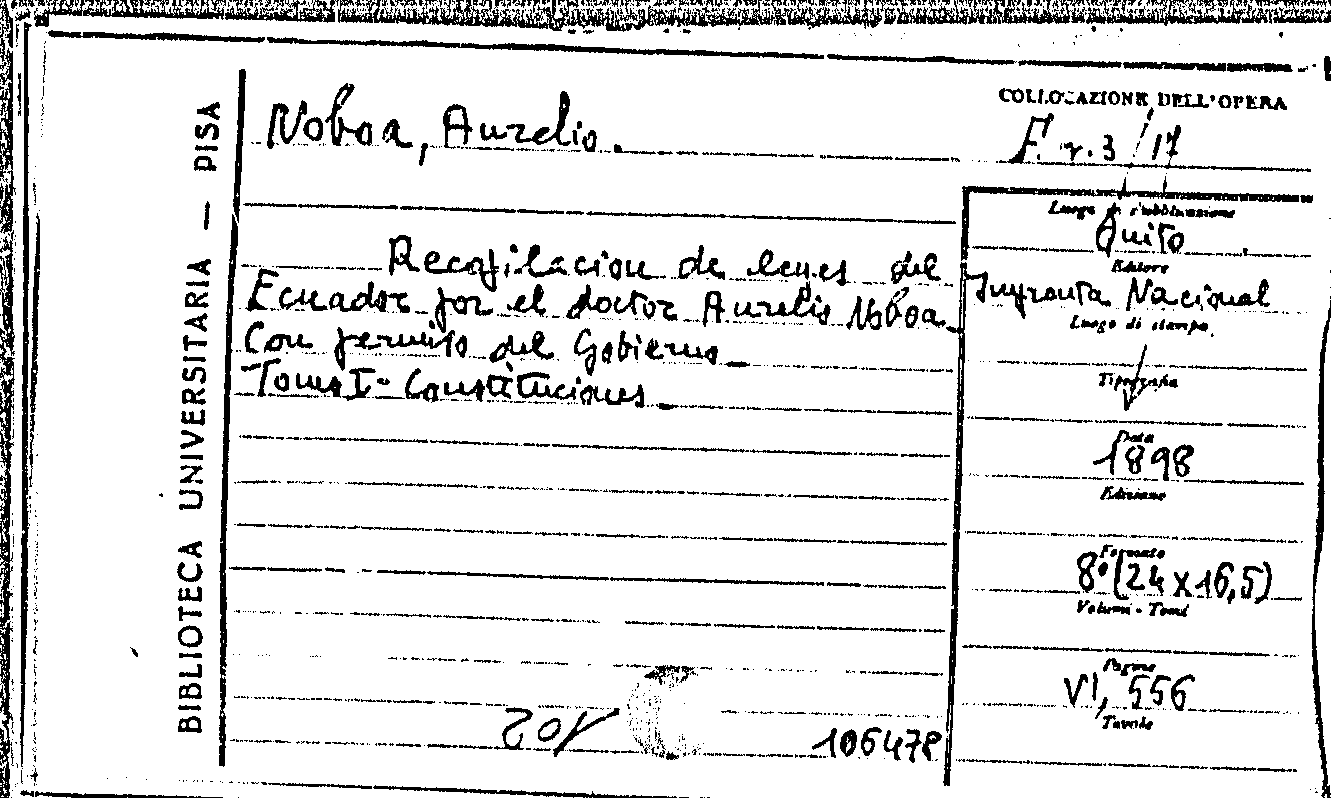 BIBLIOTECA UNIVERSITARIA — PISA
Noboa, Aurelio.
COLLOCAZIONE DELL'OPERA
F. r. 3 / 17
Recopilacion de leyes del
Ecuador por el doctor Aurelio Noboa.
Con permiso del Gobierno_
Tomo I - Constituciones_
Luogo di pubblicazione
Quito
Editore
Imprenta Nacional
Luogo di stampa
Tipografia
Data
1898
Edizione
Formato
8° (24 x 16,5)
Volumi - Tomi
Pagine
VI, 556
Tavole
106478